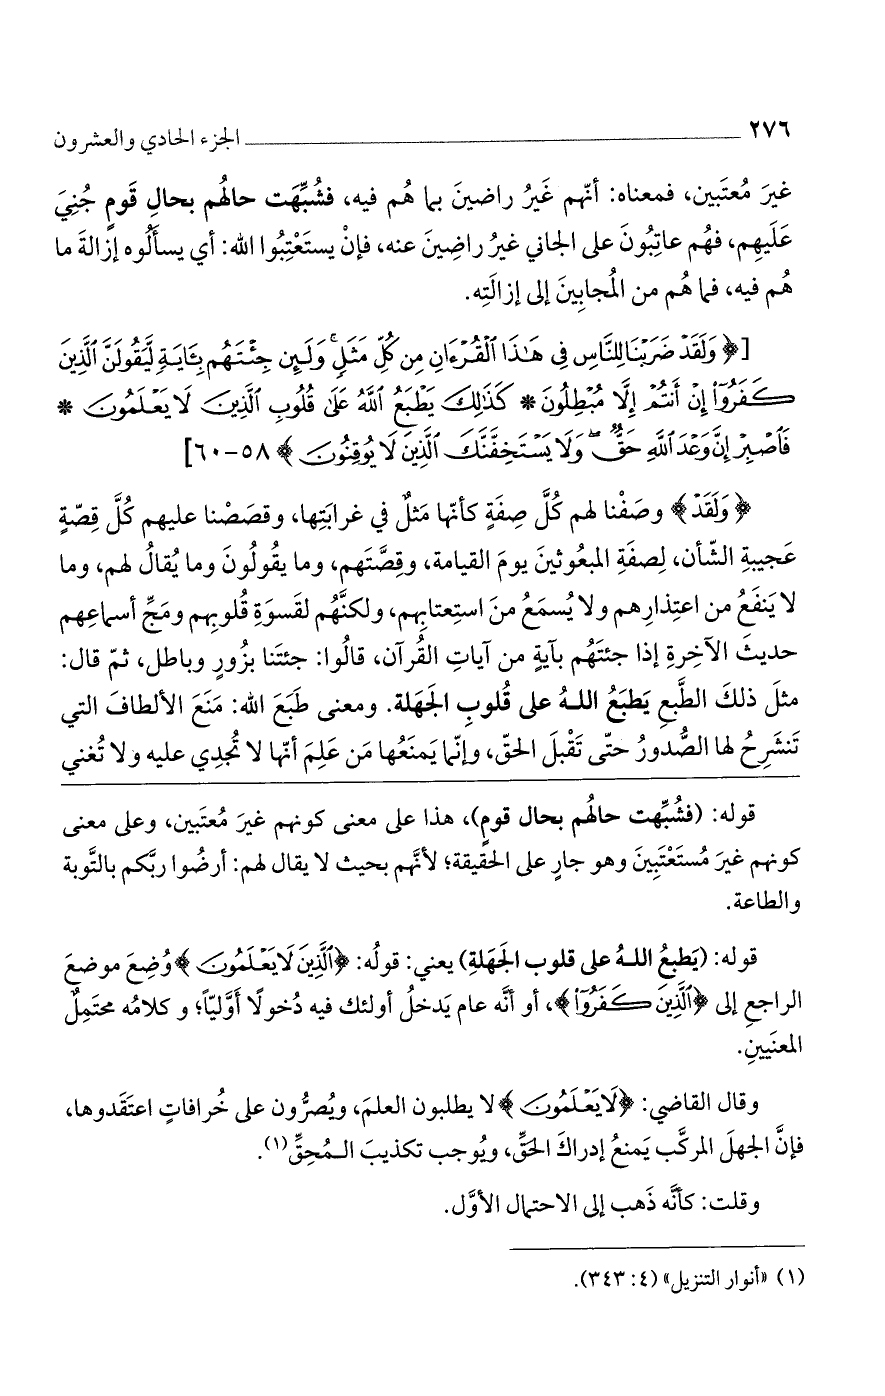 ٢٧٦ الجزء الحادي والعشرون
غيرَ مُعتَبين، فمعناه: أنّهم غَيرُ راضينَ بما هُم فيه، فشُبِّهَت حالهُم بحالِ قَومٍ جُنِيَ
عَلَيهِم، فهُم عاتِبُونَ على الجاني غيرُ راضِينَ عنه، فإنْ يستَعْتِبُوا الله: أي يسألُوه إزالةَ ما
هُم فيه، فما هُم من المُجابِينَ إلى إزالَتِه.
[﴿وَلَقَدْ ضَرَبْنَا لِلنَّاسِ فِي هَٰذَا ٱلْقُرْءَانِ مِن كُلِّ مَثَلٍ ۚ وَلَئِن جِئْتَهُم بِـَٔايَةٍ لَّيَقُولَنَّ ٱلَّذِينَ
كَفَرُوٓا۟ إِنْ أَنتُمْ إِلَّا مُبْطِلُونَ * كَذَٰلِكَ يَطْبَعُ ٱللَّهُ عَلَىٰ قُلُوبِ ٱلَّذِينَ لَا يَعْلَمُونَ *
فَٱصْبِرْ إِنَّ وَعْدَ ٱللَّهِ حَقٌّ ۖ وَلَا يَسْتَخِفَّنَّكَ ٱلَّذِينَ لَا يُوقِنُونَ﴾ ٥٨-٦٠]
﴿وَلَقَدْ﴾ وصَفْنا لهم كُلَّ صِفَةٍ كأنّها مَثلٌ في غرابَتِها، وقصَصْنا عليهم كُلَّ قِصّةٍ
عَجيبةِ الشّأن، لِصفَةِ المبعُوثينَ يومَ القيامة، وقِصَّتَهم، وما يقُولُونَ وما يُقالُ لهم، وما
لا يَنفَعُ من اعتِذارِهم ولا يُسمَعُ منَ استِعتابِهم، ولكنَّهُم لقَسوَةِ قُلوبِهم ومَجِّ أسماعِهم
حديثَ الآخِرةِ إذا جئتَهُم بآيةٍ من آياتِ القُرآن، قالُوا: جئتَنا بزُورٍ وباطل، ثمّ قال:
مثلَ ذلكَ الطَّبعِ يَطبَعُ اللهُ على قُلوبِ الجَهَلة. ومعنى طَبَعَ الله: مَنَعَ الألطافَ التي
تَنشَرِحُ لها الصُّدورُ حتّى تَقْبلَ الحقّ، وإنّما يَمنَعُها مَن عَلِمَ أنّها لا تُجدِي عليه ولا تُغني
قوله: (فشُبِّهت حالهُم بحال قومٍ)، هذا على معنى كونهم غيرَ مُعتَبين، وعلى معنى
كونهم غيرَ مُستَعْتَبِينَ وهو جارٍ على الحقيقة؛ لأنَّهم بحيث لا يقال لهم: أرضُوا ربَّكم بالتَّوبة
والطاعة.
قوله: (يَطبعُ اللهُ على قلوب الجَهَلةِ) يعني: قولُه: ﴿ٱلَّذِينَ لَا يَعْلَمُونَ﴾ وُضِعَ موضعَ
الراجعِ إلى ﴿ٱلَّذِينَ كَفَرُوٓا۟﴾، أو أنَّه عام يَدخلُ أولئك فيه دُخولًا أوَّليّاً؛ وكلامُه محتَمِلٌ
المعنَيينِ.
وقال القاضي: ﴿لَا يَعْلَمُونَ﴾ لا يطلبون العلمَ، ويُصرُّون على خُرافاتٍ اعتَقَدوها،
فإنَّ الجهلَ المركَّب يَمنعُ إدراكَ الحَقِّ، ويُوجب تكذيبَ المُحِقِّ(١).
وقلت: كأنَّه ذَهب إلى الاحتمال الأوَّل.
(١) «أنوار التنزيل» (٤: ٣٤٣).